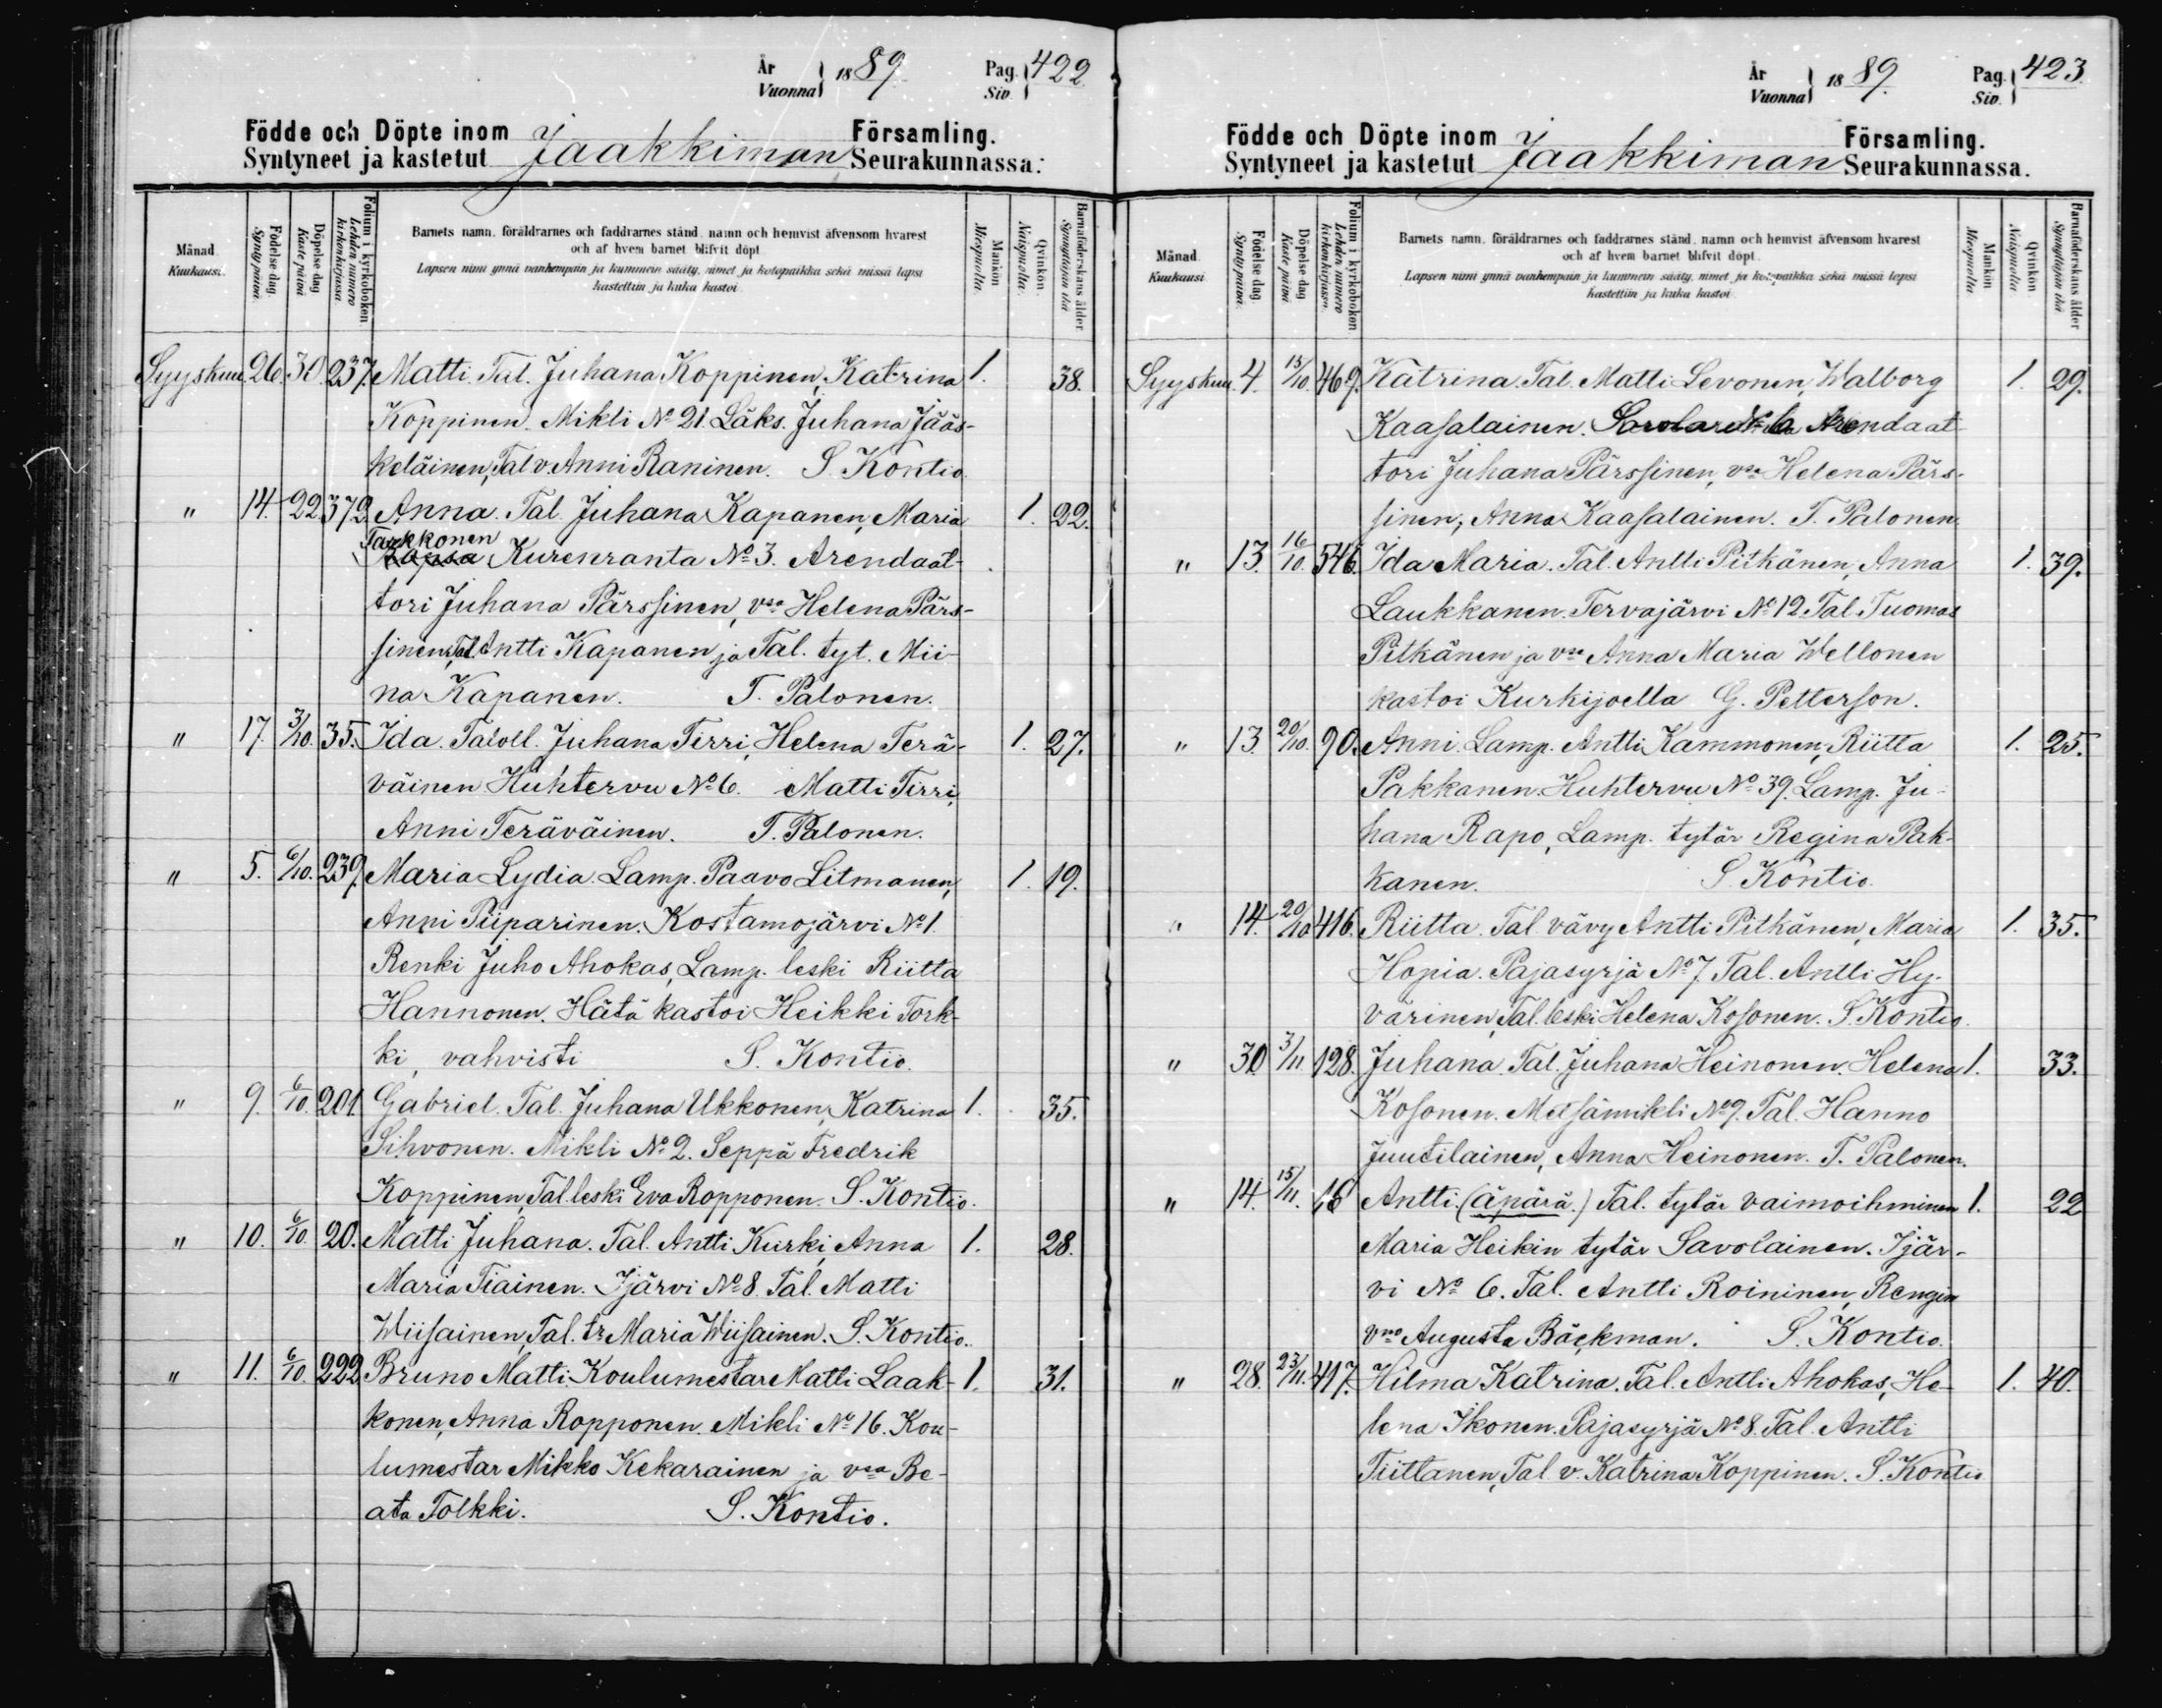 År Vuonna 1889. Pag. Siv. 422
Födde och Döpte inom Jaakkiman Församling.
Syntyneet ja kastetut Seurakunnassa:
Månad Kuukausi.
Födelse dag. Synty päivä.
Döpelse dag Kaste päivä
Folium i kyrkoboken Lehden numero kirkonkirjassa
Barnets namn, föräldrarnes och faddrarnes stånd, namn och hemvist äfvensom hvarest
och af hvem barnet blifvit döpt
Lapsen nimi ynnä vanhempain ja kummein sääty, nimet ja kotopaikka sekä missä lapsi
kastettiin ja kuka kastoi
Mankön Miespuolia.
Qvinkön. Naispuolia.
Barnaföderskans ålder Synnyttäjän ikä
Syyskuu. 26. 30. 237. Matti. Tal. Juhana Koppinen, Katrina 1. 38.
Koppinen. Mikli No 21. Läks. Juhana Jääs-
keläinen, Tal v. Anni Raninen. S. Kontio.
" 14. 22. 372. Anna. Tal. Juhana Kapanen, Maria 1. 22.
Tarkkonen
Kurenranta No 3. Arendaat-
tori Juhana Pärssinen, vmo Helena Pärs-
sinen, Tal. Antti Kapanen ja Tal. tyt. Mii-
na Kapanen. T. Palonen.
" 17. 3/10. 35. Ida. Taloll. Juhana Tirri, Helena Terä- 1. 27.
väinen Huhtervu No 6. Matti Tirri,
Anni Teräväinen. T. Palonen.
" 5. 6/10. 239. Maria Lydia. Lamp. Paavo Litmanen, 1. 19.
Anni Piiparinen. Kostamojärvi No 1.
Renki Juho Ahokas, Lamp. leski Riitta
Hannonen. Hätä kastoi Heikki Tork-
ki, vahvisti S. Kontio.
" 9. 6/10. 201. Gabriel. Tal. Juhana Ukkonen, Katrina 1. 35.
Sihvonen. Mikli No 2. Seppä Fredrik
Koppinen, Tal leski Eva Ropponen. S. Kontio.
" 10. 6/10. 20. Matti Juhana. Tal. Antti Kurki, Anna 1. 28.
Maria Tiainen. Ijärvi No 8. Tal. Matti
Wiisainen, Tal. tr Maria Wiisainen. S. Kontio.
" 11. 6/10. 222. Bruno Matti. Koulumestar Matti Laak- 1. 31.
konen, Anna Ropponen. Mikli No 16. Kou-
lumestar Mikko Kekarainen ja vmo Be-
ata Tolkki. S. Kontio.
År Vuonna 1889. Pag. Siv. 423
Födde och Döpte inom Jaakkiman Församling.
Syntyneet ja kastetut Seurakunnassa.
Månad. Kuukausi
Födelse dag. Synty päivä.
Döpelse dag Kaste päivä.
Folium i kyrkoboken Lehden numero kirkonkirjassa.
Barnets namn, föräldrarnes och faddrarnes stånd, namn och hemvist äfvensom hvarest
och af hvem barnet blifvit döpt.
Lapsen nimi ynnä vanhempain ja kummein sääty, nimet ja kotopaikka sekä missä lapsi
kastettiin ja kuka kastoi
Mankön Miespuolia
Qvinkön Naispuolia.
Barnaföderskans ålder Synnyttäjän ikä
Syyskuu. 4. 15/10. 469. Katrina. Tal. Matti Levonen, Walborg 1. 29.
Kaasalainen. No 6 Arendaat-
tori Juhana Pärssinen, vmo Helena Pärs-
sinen, Anna Kaasalainen. T. Palonen.
" 13. 16/10. 546. Ida Maria. Tal. Antti Pitkänen, Anna 1. 39.
Laukkanen. Tervajärvi No 12. Tal. Tuomas
Pitkänen ja vmo Anna Maria Wellonen
kastoi Kurkijoella G. Petterson.
" 13. 20/10. 90. Anni. Lamp. Antti Kammonen, Riitta 1. 25.
Pakkanen. Huhtervu No 39. Lamp. Ju-
hana Rapo, Lamp. tytär Regina Pak-
kanen. S. Kontio.
" 14. 20/10 416. Riitta. Tal vävy Antti Pitkänen, Maria 1. 35.
Hopia. Pajasyrjä No 7. Tal. Antti Hy-
värinen, Tal. leski Helena Kosonen. S. Kontio.
" 30. 3/11. 128. Juhana. Tal. Juhana Heinonen. Helena 1. 33.
Kosonen. Metsämikli No 9. Tal. Hanno
Juutilainen, Anna Heinonen. T. Palonen.
" 14. 15/11. 16 Antti. (äpärä.) Tal. tytär vaimoihminen 1. 22
Maria Heikin tytär Savolainen. Ijär-
vi No 6. Tal. Antti Roininen, Rengin
vmo Augusta Bäckman. S. Kontio.
" 28. 23/11. 417. Hilma Katrina. Tal. Antti Ahokas, He- 1. 40.
lena Ikonen. Pajasyrjä No 8. Tal. Antti
Tiittanen, Tal v. Katrina Koppinen. S. Kontio